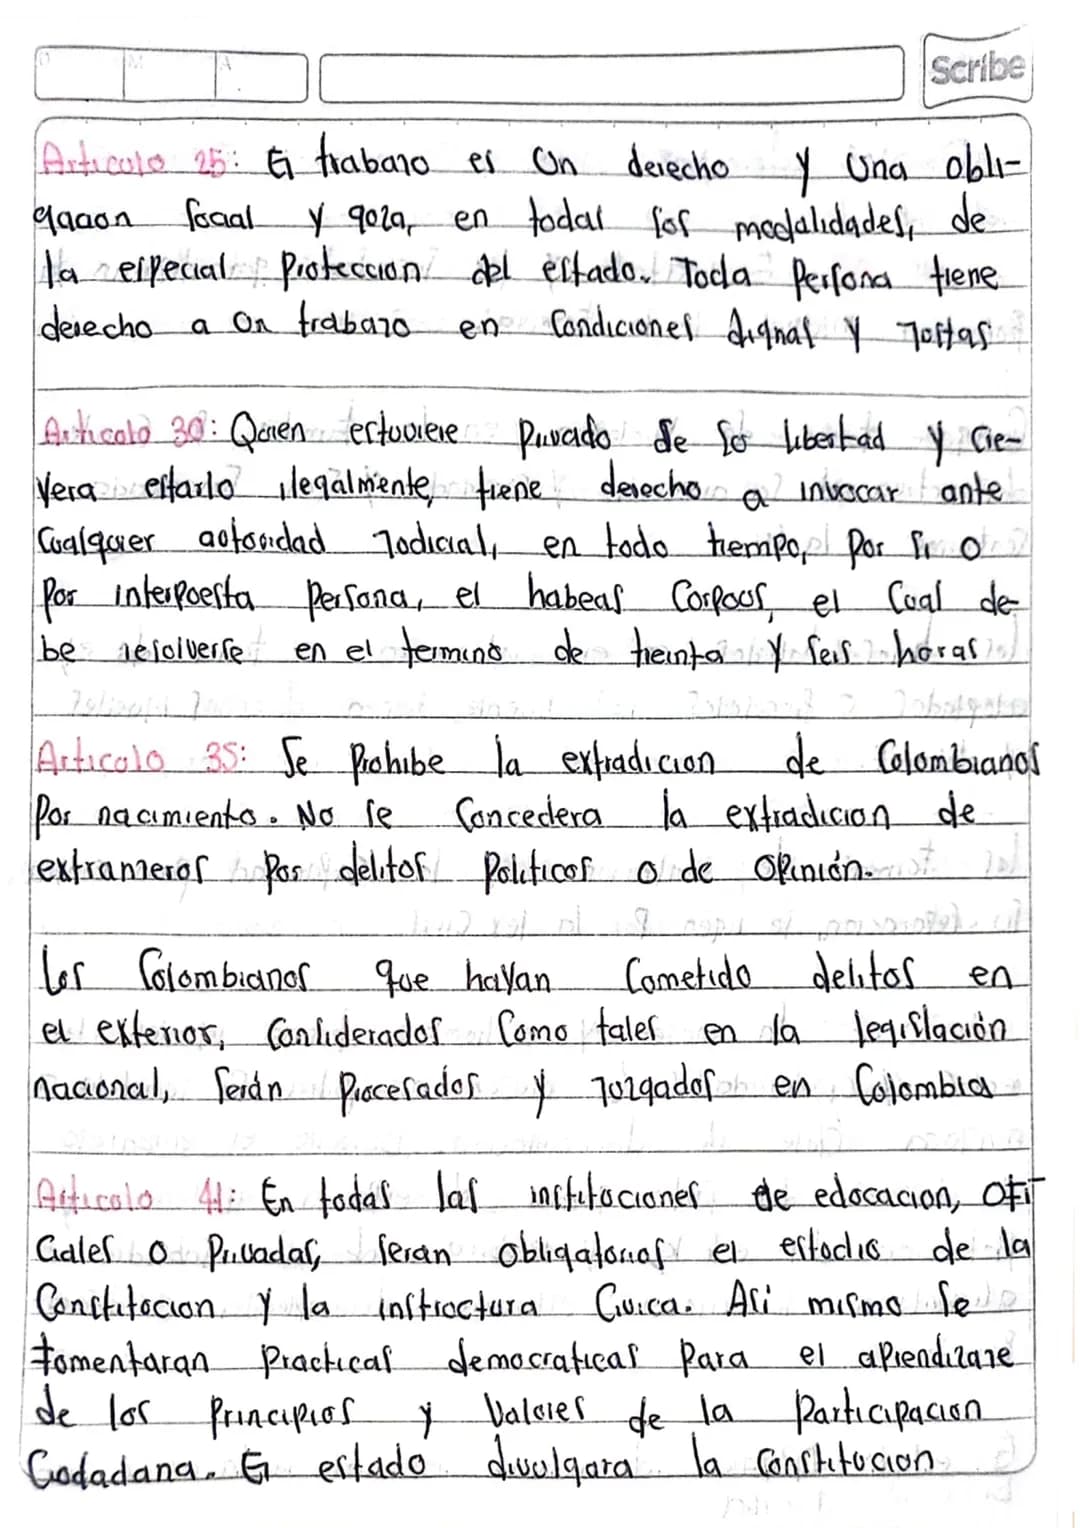 D M A Scribe
Articulo 25: El trabajo es un derecho y una obli-
gacion social y goza, en todas sus modalidades, de
la especial Proteccion del estado. Toda Persona tiene
derecho a un trabajo en Condiciones dignas y Justas
Articulo 30: Quien estuviere Privado de su libertad y Cre-
Yera estarlo ilegalmente, tiene derecho a invocar ante
Cualquier autoridad Judicial, en todo tiempo, Por si o
Por interpuesta Persona, el habeas Corpus, el Cual de-
be resolverse en el termino de treinta y seis horas
Articulo 35: Se Prohibe la extradicion de Colombianos
Por nacimiento. No se Concedera la extradicion de
extranjeros Por delitos Politicos o de Opinión.
Los Colombianos que hayan Cometido delitos en
el exterior, Considerados Como tales en la legislación
nacional, Serán Procesados y Juzgados en Colombia
Articulo 41: En todas las instituciones de educacion, Ofi
Ciales o Privadas, seran obligatorias el estudio de la
Constitucion y la instructura Civica. Asi mismo Se
fomentaran Practicas democraticas Para el aprendizaje
de los Principios y Valores de la Participacion
Ciudadana. El estado divulgara la Constitucion